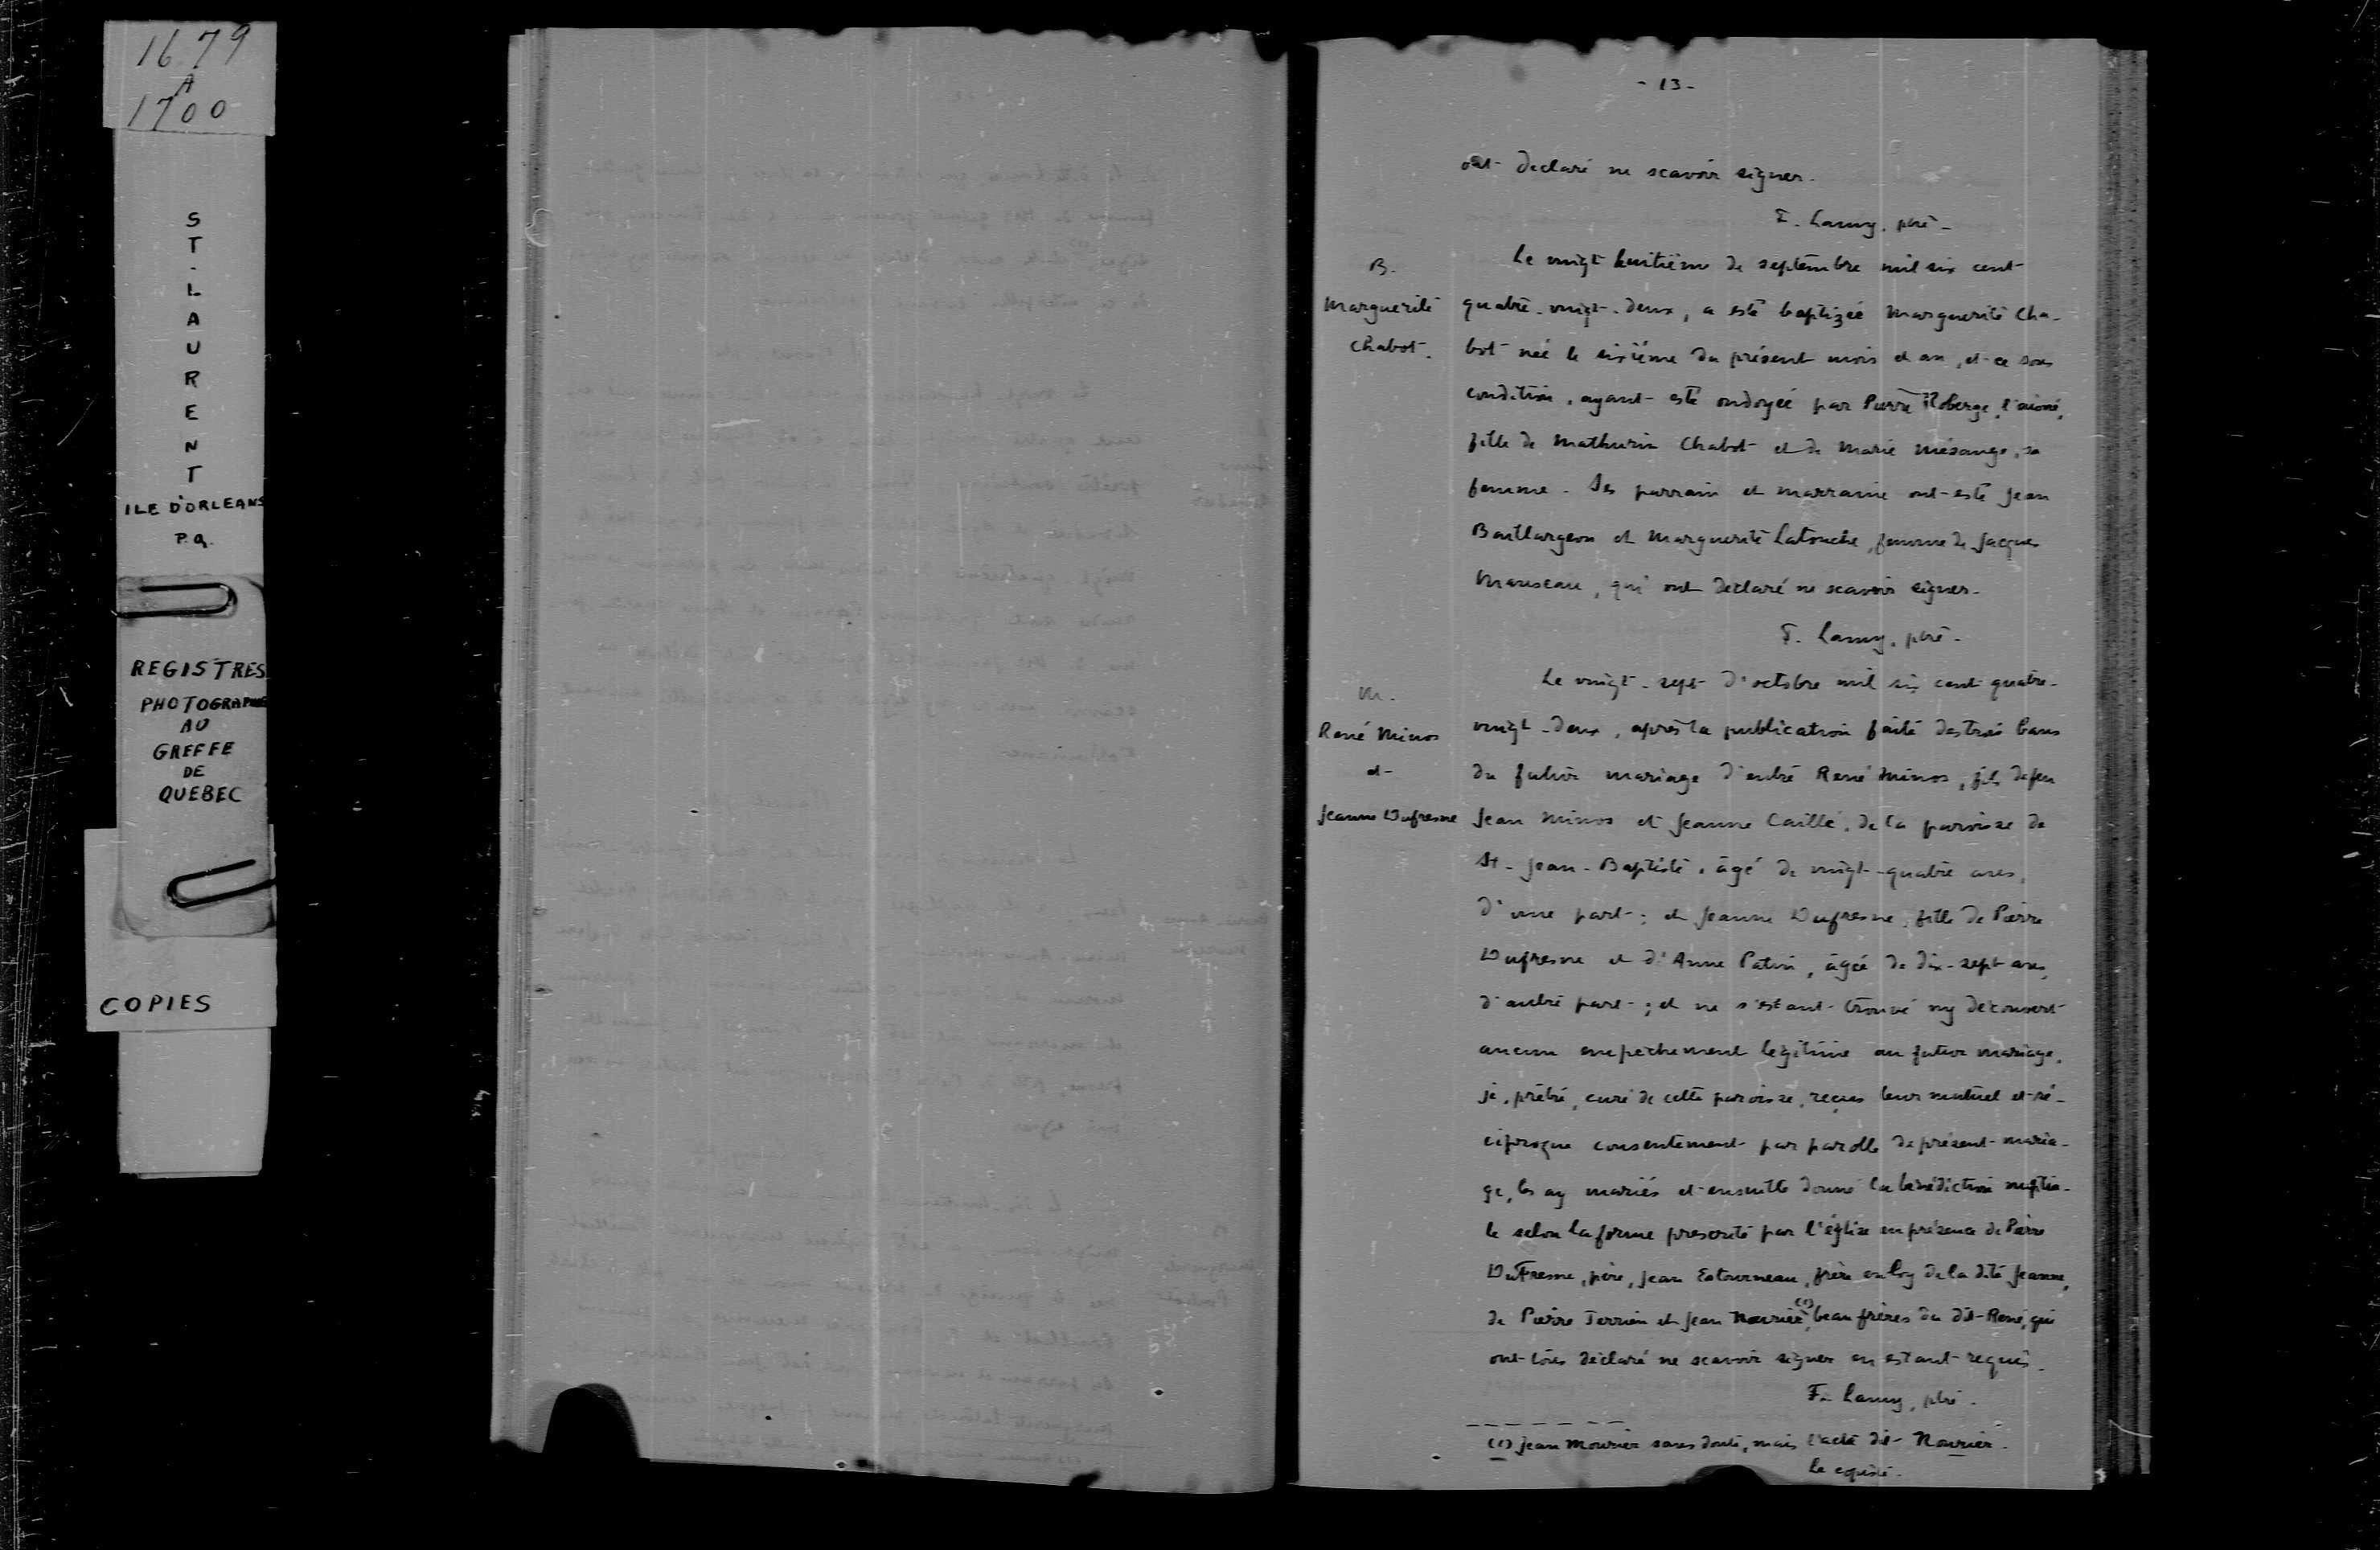 1679
A
1700
ST. LAURENT
ILE D'ORLEANS
P.Q.
REGISTRES
PHOTOGRAPHIÉS
AU
GREFFE
DE
QUEBEC
COPIES
- 13 -
ont declaré ne scavoir signer.
F. Lamy, ptre.
B.
Marguerite
Chabot.
Le vingt huitième de septembre mil six cent
quatre-vingt-deux, a esté baptizée Marguerite Cha-
bot née le sixième du présent mois et an, et ce sous
condition, ayant esté ondoyée par Pierre Roberge, l'aisné,
fille de Mathurin Chabot et de Marie Mésange, sa
femme. Ses parrain et marraine ont esté Jean
Baillargeon et Marguerite Latouche, femme de Jacques
Manseau, qui ont declaré ne scavoir signer.
F. Lamy, ptre.
M.
René Minos
et
Jeanne Dufresne
Le vingt-sept d'octobre mil six cent quatre-
vingt-deux, après la publication faite des trois bans
du futur mariage d'entre René Minos, fils de feu
Jean Minos et Jeanne Caillé, de la paroisse de
St-Jean-Baptiste, âgé de vingt-quatre ans,
d'une part; et Jeanne Dufresne, fille de Pierre
Dufresne et d'Anne Patin, âgée de dix-sept ans,
d'autre part; et ne s'estant trouvé ny découvert
aucun empechement légitime au futur mariage,
je, prêtre, curé de cette paroisse, reçus leur mutuel et ré-
ciproque consentement par parolle de présent maria-
ge, les ay mariés et ensuitte donné la bénédiction nuptia-
le selon la forme prescrite par l'église en présence de Pierre
DuFresne, père, Jean Estourneau, frère en loy de la dite Jeanne,
de Pierre Terrien et Jean Nourier (1), beau frères du dit René, qui
ont tous déclaré ne scavoir signer en estant requis.
F. Lamy, ptre.
(1) Jean Mourier sans doute, mais l'acte dit Nourier.
Le copiste.